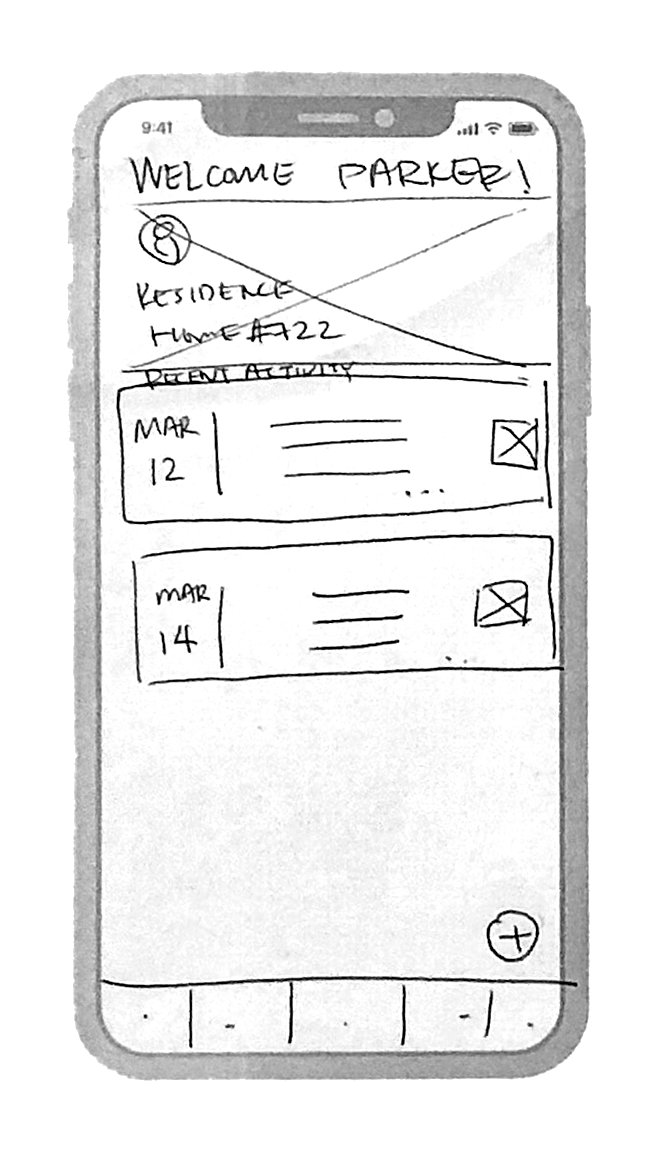 9:41
WELCOME PARKER!
RESIDENCE
HOME #722
RECENT ACTIVITY
MAR
12
...
MAR
14
+